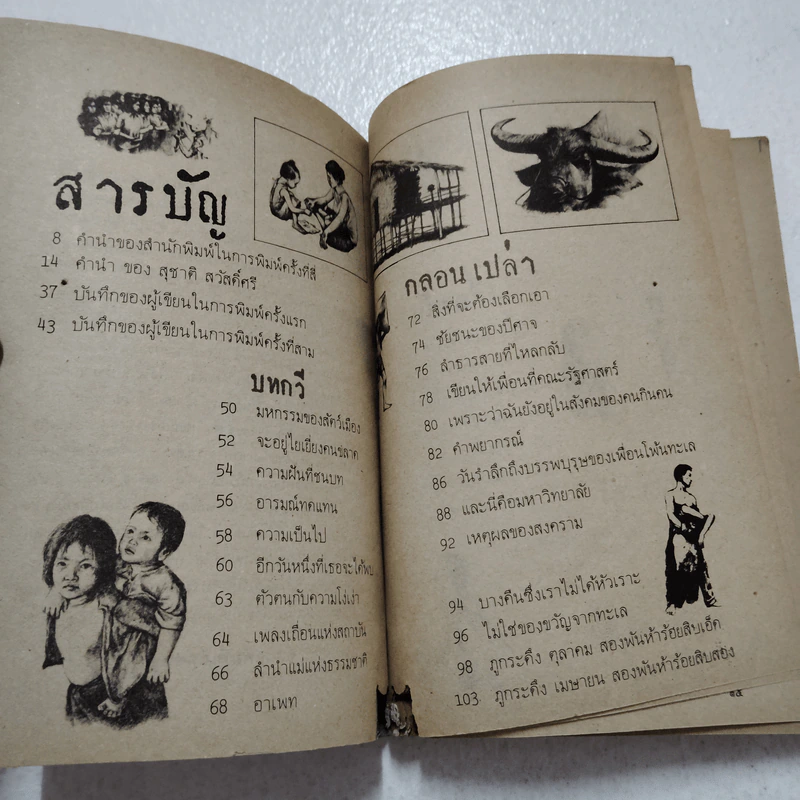 สารบัญ
8 คำนำของสำนักพิมพ์ในการพิมพ์ครั้งที่สี่
14 คำนำ ของ สุชาติ สวัสดิ์ศรี
37 บันทึกของผู้เขียนในการพิมพ์ครั้งแรก
43 บันทึกของผู้เขียนในการพิมพ์ครั้งที่สาม
บทกวี
50 มหกรรมของสัตว์เมือง
52 จะอยู่ไยเยี่ยงคนขลาด
54 ความฝันที่ชนบท
56 อารมณ์ทดแทน
58 ความเป็นไป
60 อีกวันหนึ่งที่เธอจะได้พบ
63 ตัวตนกับความโง่เง่า
64 เพลงเถื่อนแห่งสถาบัน
66 ลำนำแม่แห่งธรรมชาติ
68 อาเพท
กลอนเปล่า
72 สิ่งที่จะต้องเลือกเอา
74 ชัยชนะของปีศาจ
76 ลำธารสายที่ไหลกลับ
78 เขียนให้เพื่อนที่คณะรัฐศาสตร์
80 เพราะว่าฉันยังอยู่ในสังคมของคนกินคน
82 คำพยากรณ์
86 วันรำลึกถึงบรรพบุรุษของเพื่อนโพ้นทะเล
88 และนี่คือมหาวิทยาลัย
92 เหตุผลของสงคราม
94 บางคืนซึ่งเราไม่ได้หัวเราะ
96 ไม่ใช่ของขวัญจากทะเล
98 ภูกระดึง ตุลาคม สองพันห้าร้อยสิบเอ็ด
103 ภูกระดึง เมษายน สองพันห้าร้อยสิบสอง